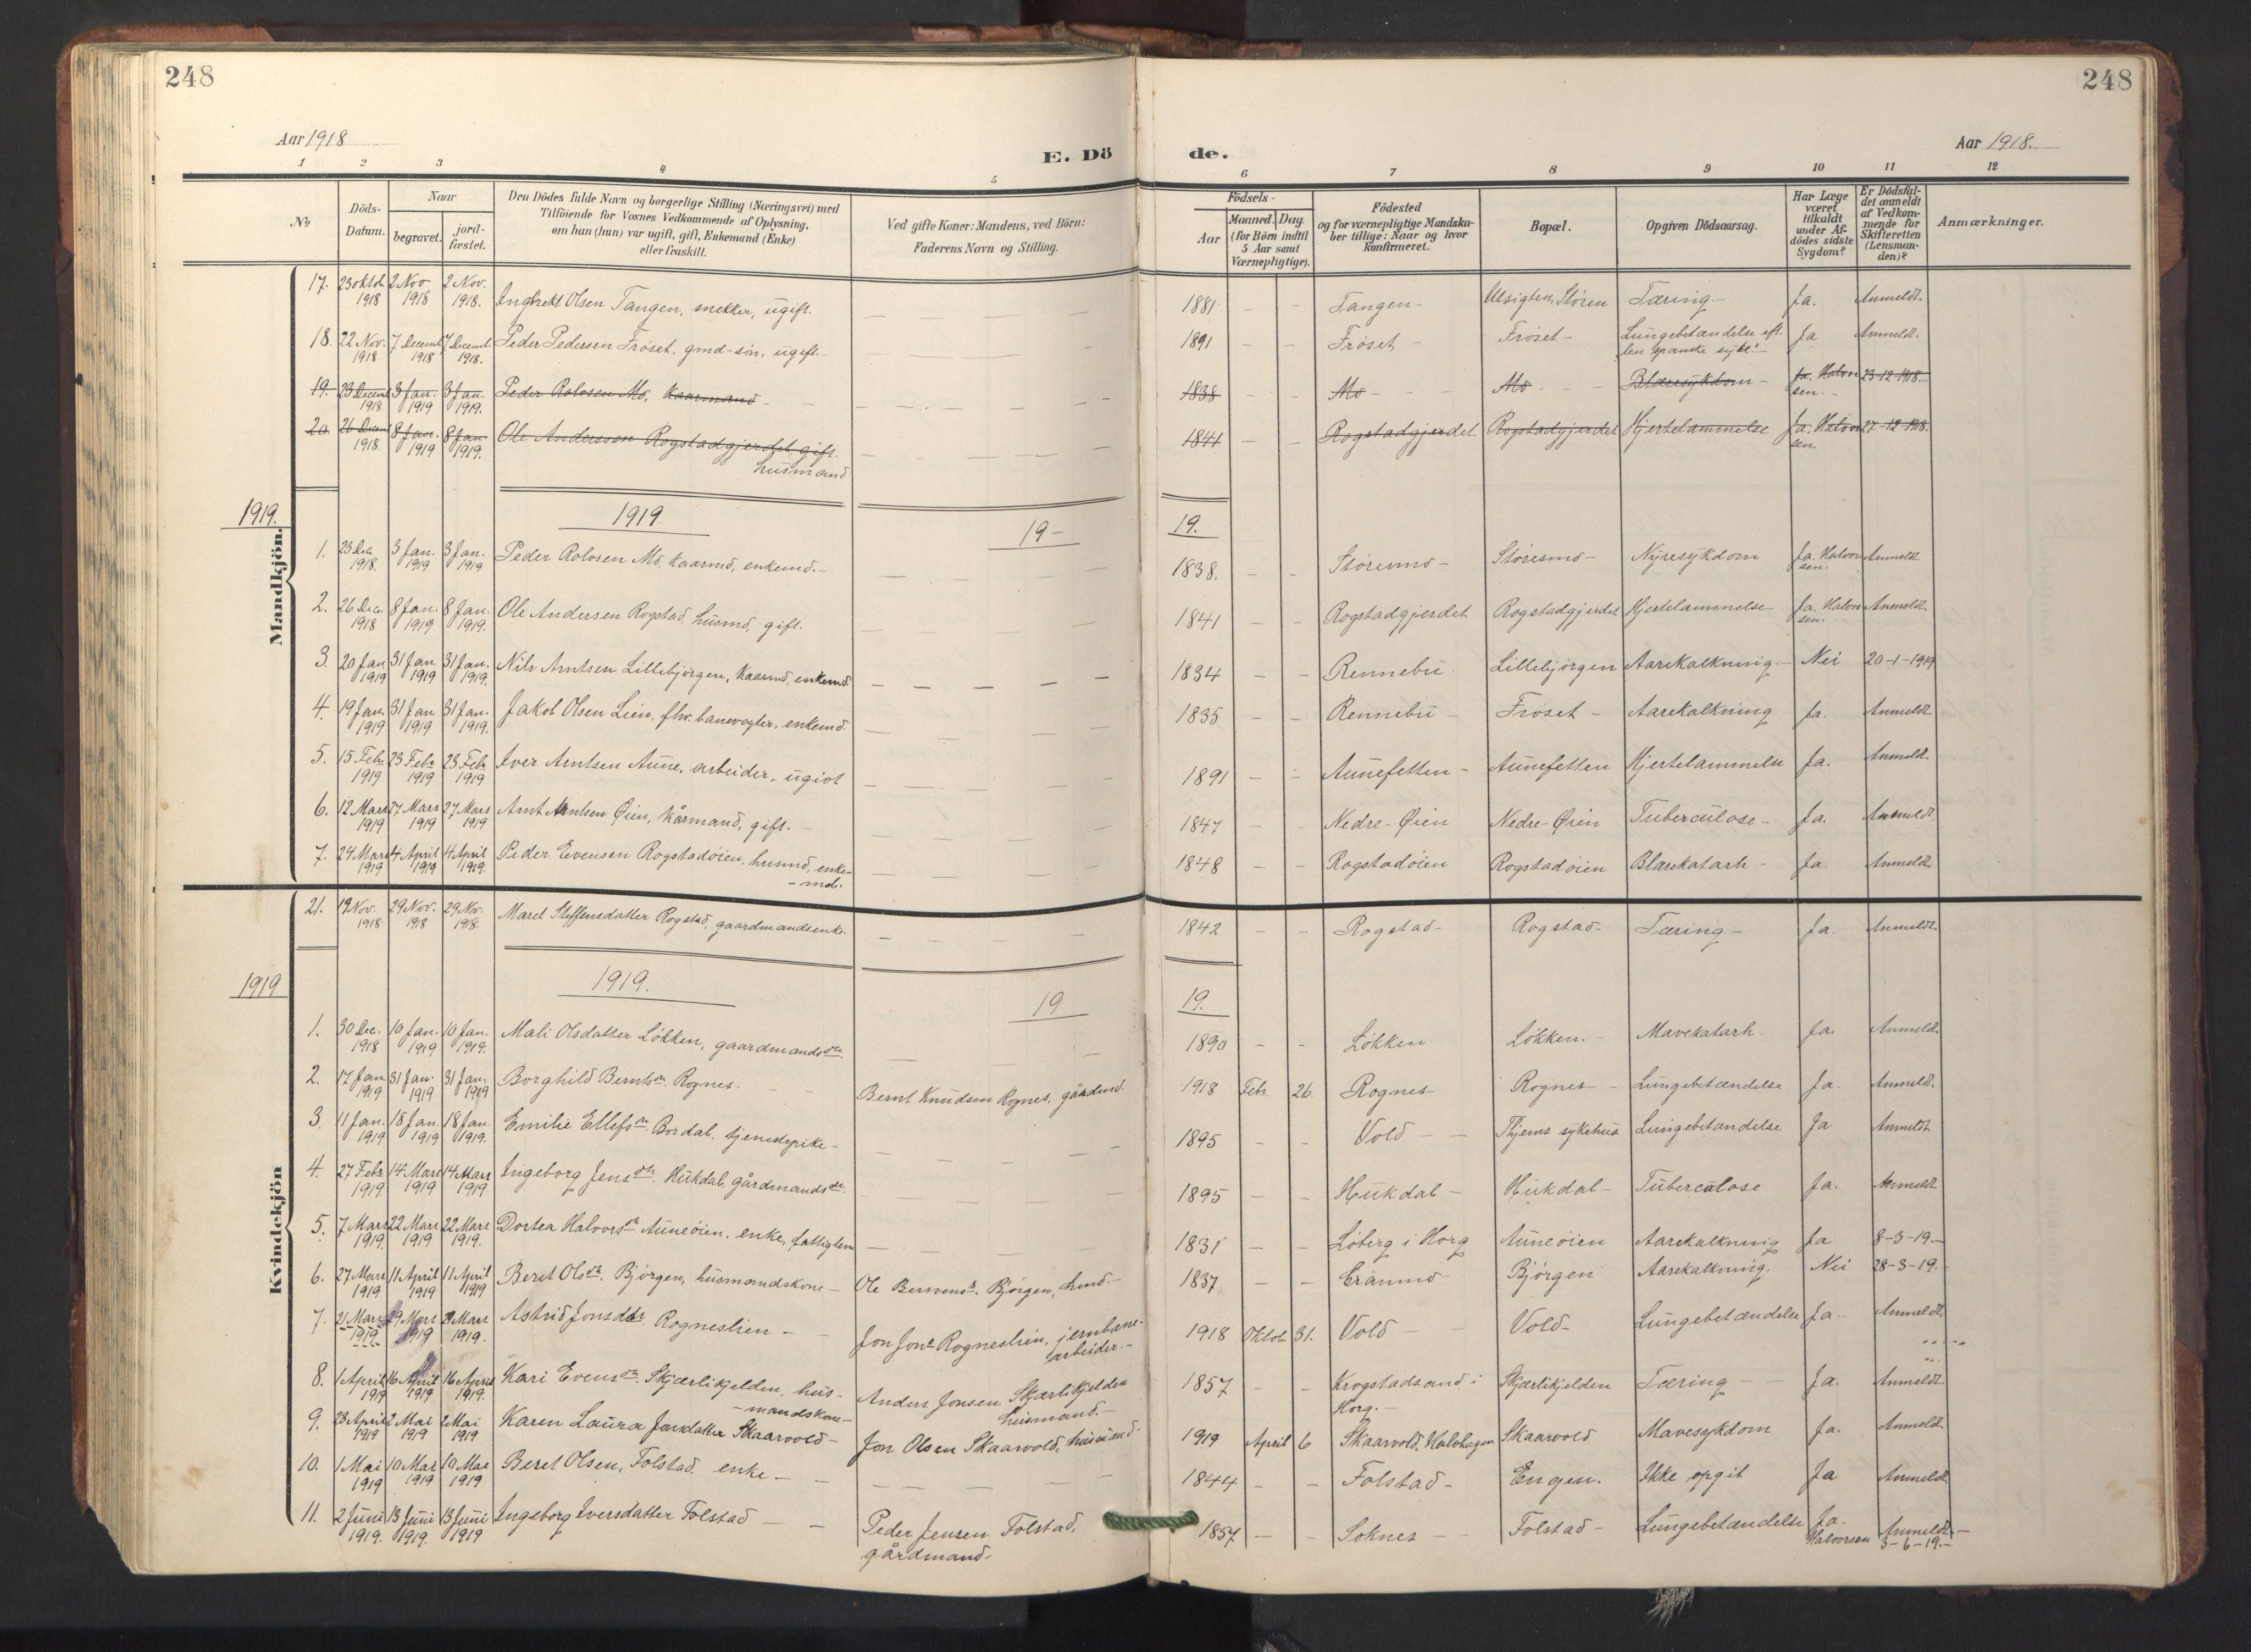 248
248
Aar 1918
Aar 1918.
E. Dö
de.
1 2 3 4 5 6 7 8 9 10 11 12
№
Döds-Datum.
Naar
begravet.
jord-fæstet.
Den Dödes fulde Navn og borgerlige Stilling (Næringsvei) med
Tilföiende for Voxnes Vedkommende af Oplysning,
om han (hun) var ugift, gift, Enkemand (Enke)
eller fraskilt.
Ved gifte Koner: Mandens, ved Börn:
Faderens Navn og Stilling.
Födsels-
Aar
Maaned. Dag
(for Börn indtil
5 Aar samt
Værnepligtige).
Födested
og for værnepligtige Mandska-
ber tillige: Naar og hvor
konfirmeret.
Bopæl.
Opgiven Dödsaarsag.
Har Læge
været
tilkaldt
under Af-
dödes sidste
Sygdom?
Er Dödsfal-
det anmeldt
af Vedkom-
mende for
Skifteretten
(Lensman-
den)?
Anmærkninger.
Mandkjön.
17. 23 oktob 1918 2 Nov 1918 2 Nov. 1918. Ingbrekt Olsen Tangen, snekker, ugift. 1881 – – Tangen – Utsigten, Støren Tæring – Ja. Anmeldt.
18. 22 Nov. 1918 7 Decemb 1918 7 Decemb. 1918. Peder Pedersen Frøset, gmd-søn, ugift. 1891 – – Frøset – Frøset – Lungebetændelse eft. den spanske syke! – Ja Anmeldt.
19. 23 Decemb 1918 3 Jan. 1919 3 Jan. 1919. Peder Rolosen Mo, kaarmand – 1838 – – Mo – Mo – Blæresykdom – Ja. Halvorsen. 23-12-1918.
20. 26 Decem 1918. 8 Jan. 1919 8 Jan. 1919. Ole Andersson Rogstadgjerdet, gift. husmand 1841 – – Rogstadgjerdet Rogstadgjerdet Hjertelammelse Ja. Halvorsen. 27-12-1918.
1919. 1919 19 – 19.
1. 23 Dec. 1918. 3 Jan. 1919 3 Jan. 1919 Peder Rolosen Mo, kaarmd, enkemd. – 1838. – – Støresmo – Støresmo – Nyresykdom Ja. Halvorsen. Anmeldt
2. 26 Dec. 1918 8 Jan. 1919 8 Jan. 1919. Ole Andersen Rogstad, husmd, gift. 1841 – – Rogstadgjerdet Rogstadgjerdet Hjertelammelse Ja. Halvorsen. Anmeldt.
3. 20 Jan 1919 31 Jan. 1919 31 Jan. 1919. Nils Arntsen Lillebjørgen, kaarmd, enkemd. 1834 – – Rennebu Lillebjørgen Aarekalkning – Nei 20-1-1919
4. 19 Jan. 1919 31 Jan. 1919 31 Jan. 1919. Jakob Olsen Lien, fhv. banevogter, enkemd. 1835 – – Rennebu – Frøset – Aarekalkning Ja. Anmeldt
5. 15 Febr 1919 23 Febr 1919 23 Febr 1919 Iver Arntsen Aune, arbeider, ugiot 1891 – – Aunefetten – Aunefetten Hjertelammelse Ja. Anmeldt.
6. 12 Mars 1919 27 Mars 1919 27 Mars 1919 Arnt Arntsen Øien, kårmand, gift. 1847 – – Nedre-Øien Nedre-Øien Tuberculose – Ja. Anmeldt.
7. 24 Mars 1919 4 April 1919 4 April 1919. Peder Evensen Rogstadøien, husmd, enke-
-md. 1848 – – Rogstadøien Rogstadøien Blærekatarh – Ja. Anmeldt
Kvindekjön
21. 19 Nov. 1918 29 Nov. 1918 29 Nov. 1918. Maret Steffensdatter Rogstad, gaardmandsenke. 1842 – – Rogstad – Rogstad – Tæring – Ja. Anmeldt.
1919 1919. 19 19.
1. 30 Dec. 1918 10 Jan. 1919 10 Jan. 1919. Mali Olsdatter Løkken, gaardmandsdtr. 1890 – – Løkken Løkken. – Mavekatarh. Ja. Anmeldt.
2. 17 Jan. 1919 31 Jan. 1919 31 Jan. 1919 Borghild Berntsdtr. Rognes – Bernt Knudsen Rognes, gårdmd. 1918 Febr. 26. Rognes Rognes – Lungebetændelse Ja. Anmeldt.
3. 11 Jan. 1919 18 Jan. 1919 18 Jan. 1919. Emilie Ellefsdtr. Bordal, tjenestepike – 1895 – – Vold – Thjems sykehus Lungebetændelse Ja Anmeldt
4. 27 Febr 1919. 14 Mars 1919 14 Mars 1919 Ingeborg Jensdtr. Hukdal, gårdmandsdtr. 1895 – – Hukdal – Hukdal – Tuberculose Ja. Anmeldt
5. 7 Mars 1919. 22 Mars 1919 22 Mars 1919. Dortea Halvorsdtr Auneøien, enke, fattiglem 1831 – – Løberg i Horg Auneøien Aarekalkning Ja 8-3-19. –
6. 27 Mars 1919 11 April 1919 11 April 1919 Beret Olsdtr. Bjørgen, husmandskone – Ole Bersvens. Bjørgen, husmd. – 1837 – – Eranmo Bjørgen Aarekalkning. Nei 28-3-19. –
7. 21 Mars 1919 29 Mars 1919 29 Mars 1919. Astrid Jonsdtr. Rogneslien – Jon Jons Rogneslien, jernbane-
arbeider. – 1918 Oktob 31. Vold – Vold – Lungebetændelse Ja. Anmeldt.
8. 1 April 1919 16 April 1919 16 April 1919. Kari Evensdtr. Skjærlikjelden, hus-
-mandskone – Anders Jonsen Skjærlikjelden
husmand. – 1857 – – Krogstadsand i
Horg. – Skjærlikjelden Tæring – – Ja. Anmeldt.
9. 23 April 1919 2 Mai 1919 2 Mai 1919 Karen Laura Jonsdatter Skaarvold – Jon Olsen Skaarvold, husmand – 1919 April 6 Skaarvold, Halvhagen Skaarvold Mavesykdom Ja. Anmeldt.
10. 1 Mai 1919 10 Mai 1919 10 Mai 1919 Beret Olsen, Folstad. enke – 1844 – – Folstad – Engen. Ikke opgit Ja Anmeldt.
11. 2 Juni 1919. 13 Juni 1919. 13 Juni 1919 Ingeborg Iversdatter Folstad – – Peder Jensen Folstad,
gårdmand – 1857 – – Soknes – Folstad – Lungebetændelse Ja –
Halvorsen Anmeldt –
3-6-19. –